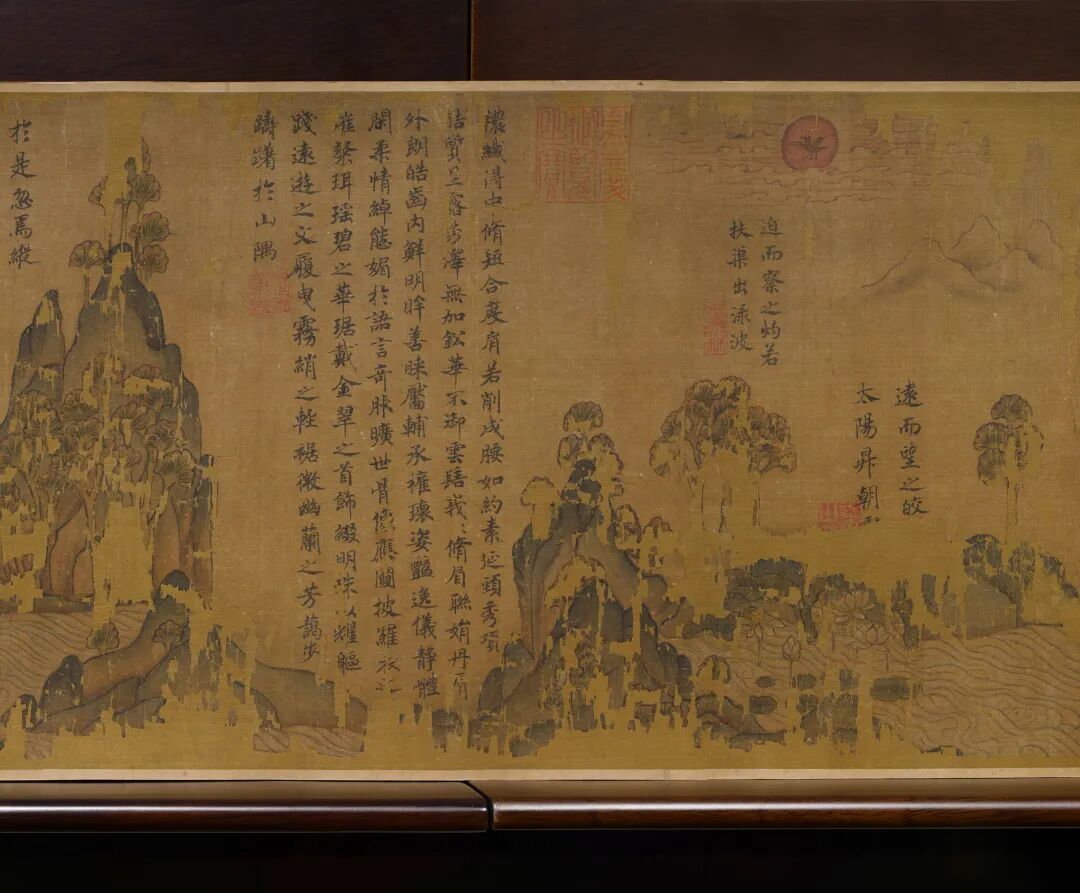 遠而望之皎
太陽昇朝
迫而察之灼若
扶渠出渌波
襛纖淂中脩短合度肩若削成腰如約素延頸秀項
皓質呈露芳澤無加鈆華不御雲髻峩〻脩眉聯娟丹脣
外朗皓齒内鮮明眸善睞靨輔承權瓌姿豔逸儀静體
閑柔情綽態媚於語言奇服曠世骨像應圖披羅衣之
璀粲珥瑶碧之華琚戴金翠之首飾綴明珠以耀軀
踐遠遊之文履曳霧綃之輕裾微幽蘭之芳藹步
躊躇於山隅
於是忽焉縱